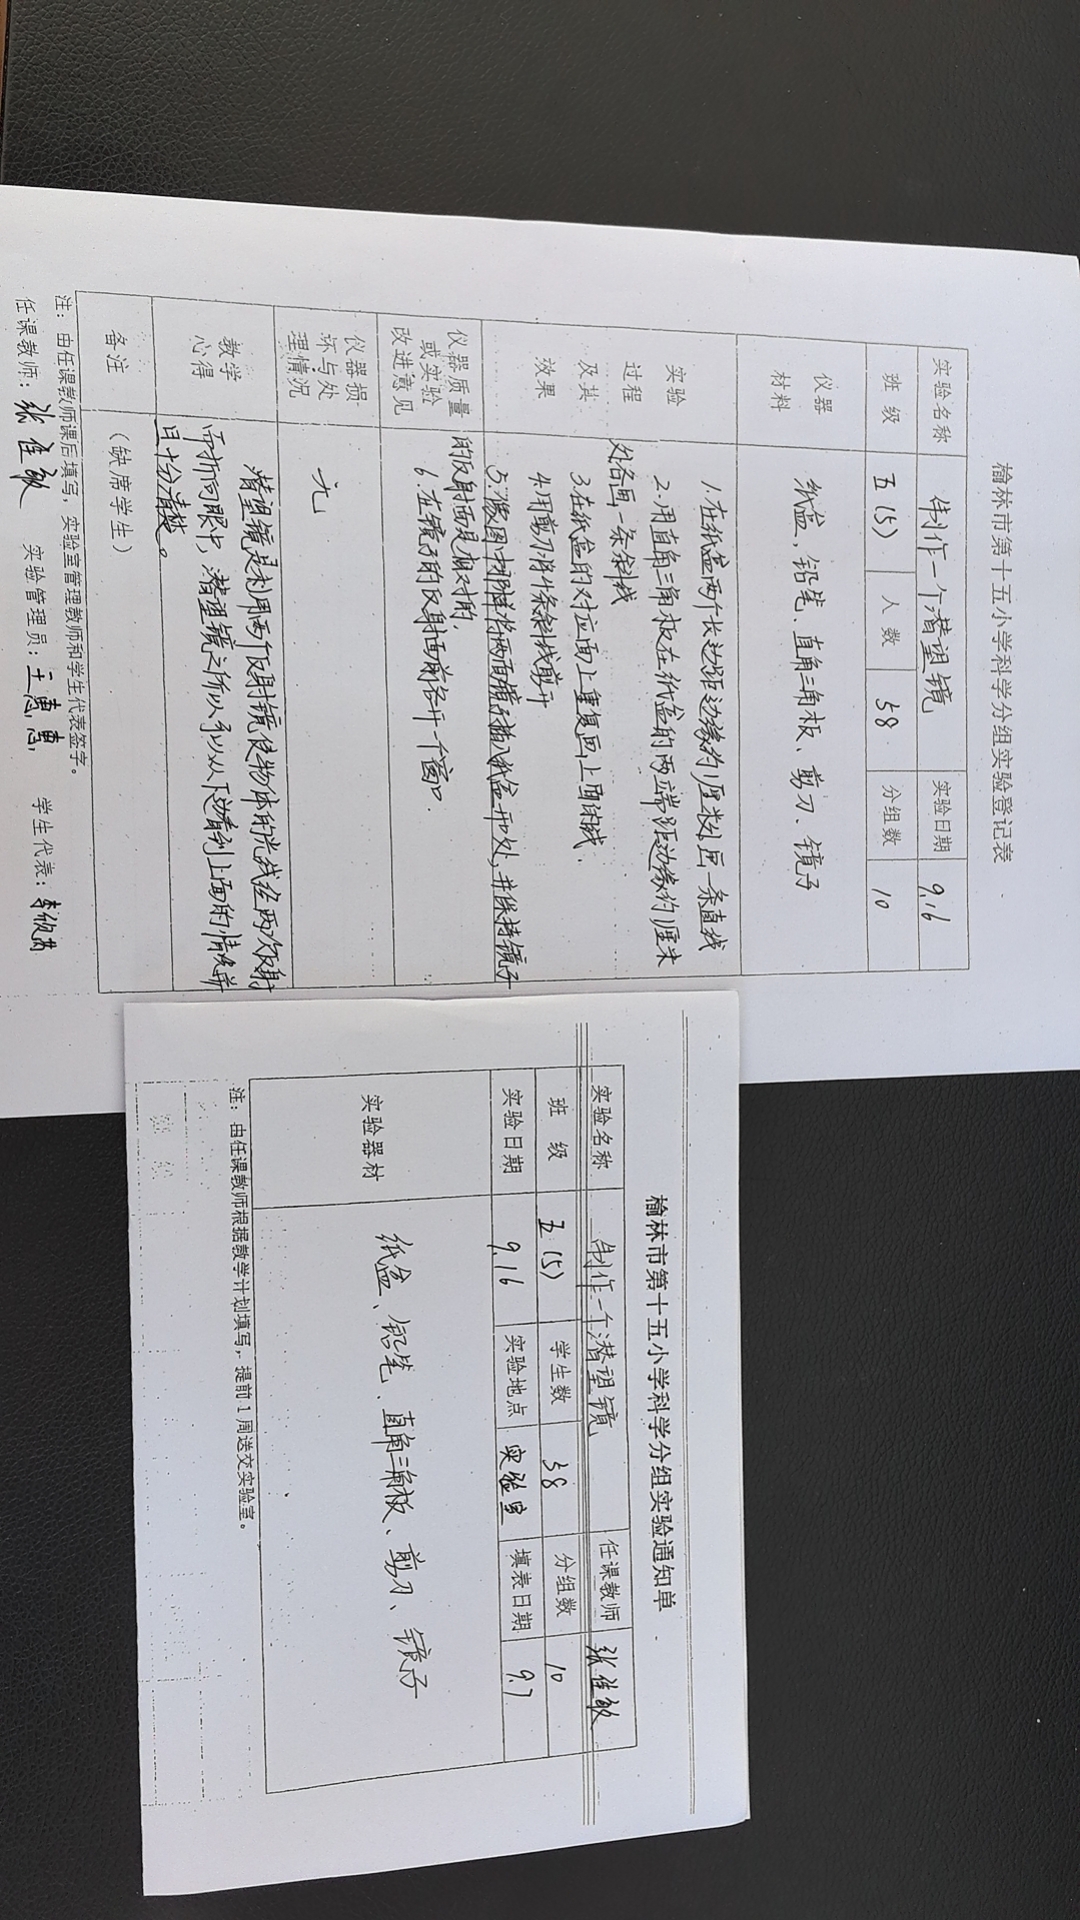 榆林市第十五小学科学分组实验登记表
实验名称 制作一个潜望镜 实验日期 9.16
班 级 五(5) 人数 58 分组数 10
仪器材料 纸盒，铅笔、直角三角板、剪刀、镜子
实验过程及其效果
1.在纸盒两个长边距边缘约1厘米处画一条直线
2.用直角三角板在纸盒的两端距边缘约1厘米
处各画一条斜线
3.在纸盒的对应面上重复画上面的线.
4.用剪刀将4条斜线剪开
5.将两面镜子插入纸盒开处,并保持镜子
的反射面是相对的,
6.在镜子的反射面前各开一个窗口.
仪器质量或实验改进意见
仪器损坏与处理情况 无
教学心得
潜望镜是利用两个反射镜使物体的光线经两次反射
而折向眼中,潜望镜之所以可以从下边看到上面的情况并
且十分清楚。
备注 （缺席学生）
注：由任课教师课后填写，实验室管理教师和学生代表签字。
任课教师：张佳敏 实验管理员：王惠惠 学生代表：李欣
榆林市第十五小学科学分组实验通知单
实验名称 制作一个潜望镜 任课教师 张佳敏
班 级 五(5) 学生数 58 分组数 10
实验日期 9.16 实验地点 实验室 填表日期 9.7
实验器材 纸盒、铅笔、直角三角板、剪刀、镜子
注：由任课教师根据教学计划填写，提前1周送交实验室。